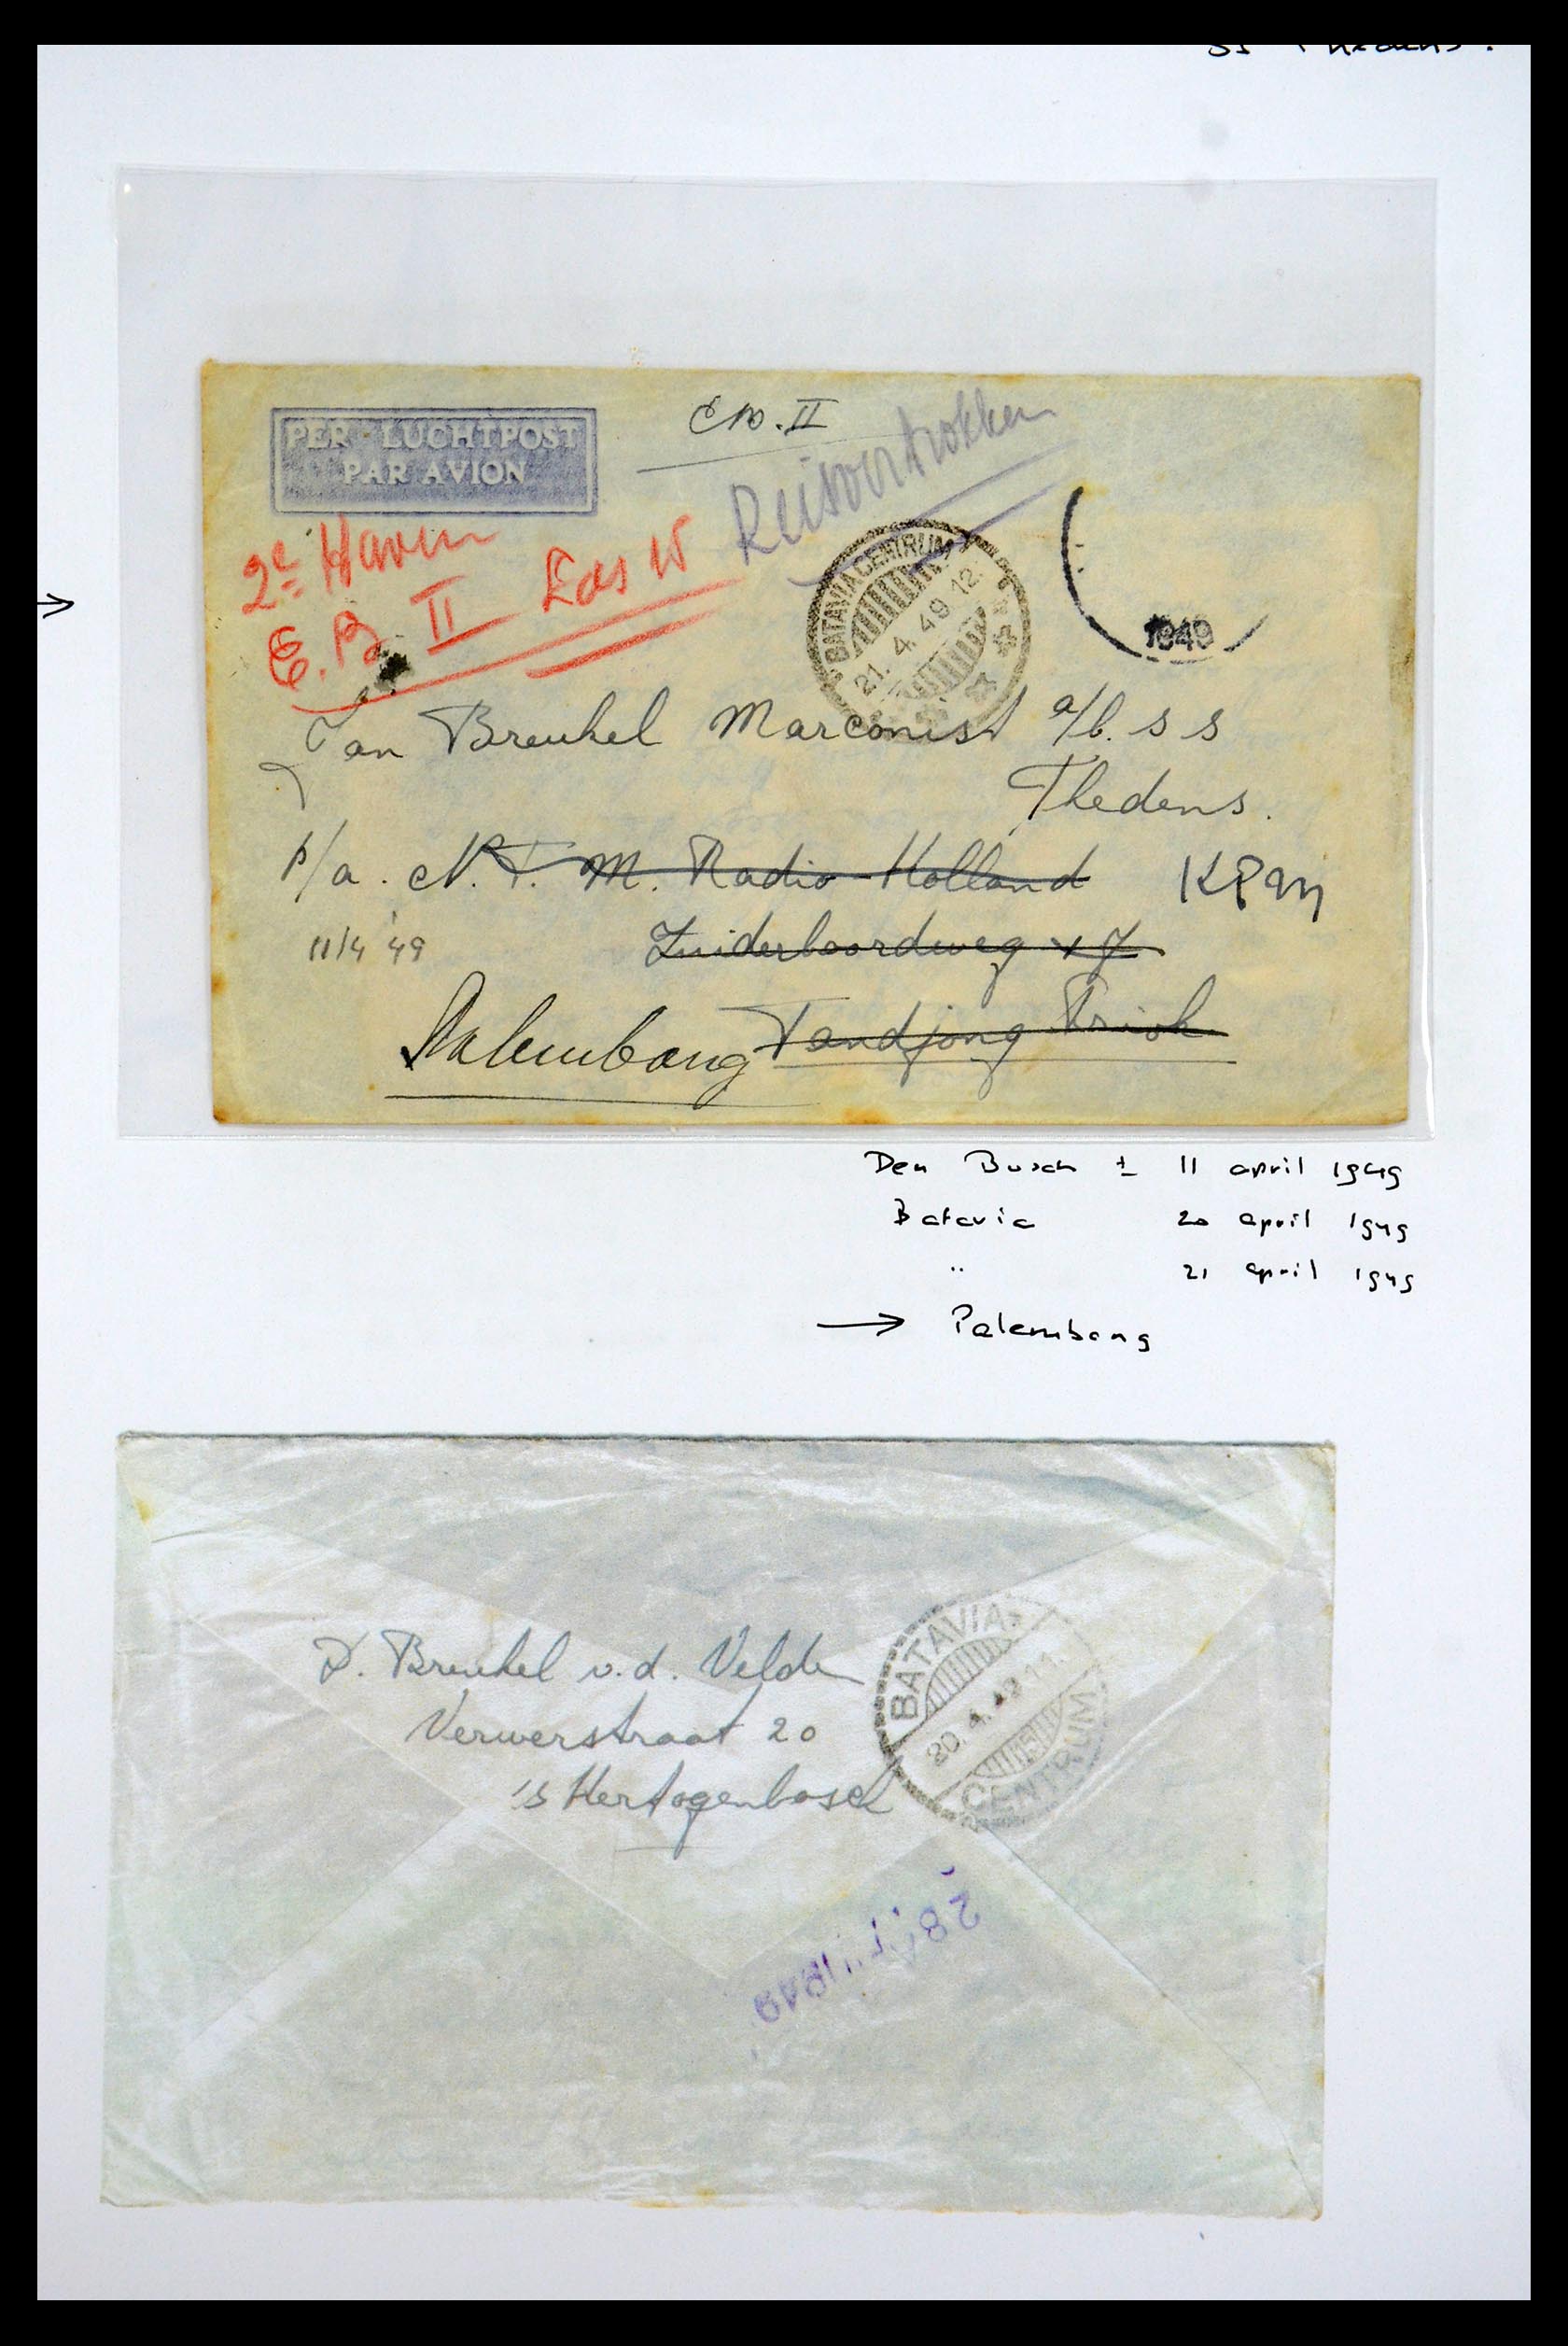 ss Thedens.
PER LUCHTPOST
PAR AVION
E B. II
Reisvertrokken
2e Haven
E.B. II
BATAVIA CENTRUM
21. 4. 49 12.
1949
Jan Breukel Marconist a/b. s s
Thedens.
p/a. N.T.M. Radio-Holland KPM
11/4 '49 Zuiderboordweg
Palembang Tandjong Priok
Den Bosch ± 11 april 1949
Batavia 20 april 1949
" 21 april 1949
→ Palembang
D. Breukel v.d. Velden
Verwerstraat 20
's Hertogenbosch
BATAVIA
20.4.49 11.
CENTRUM
28 1949